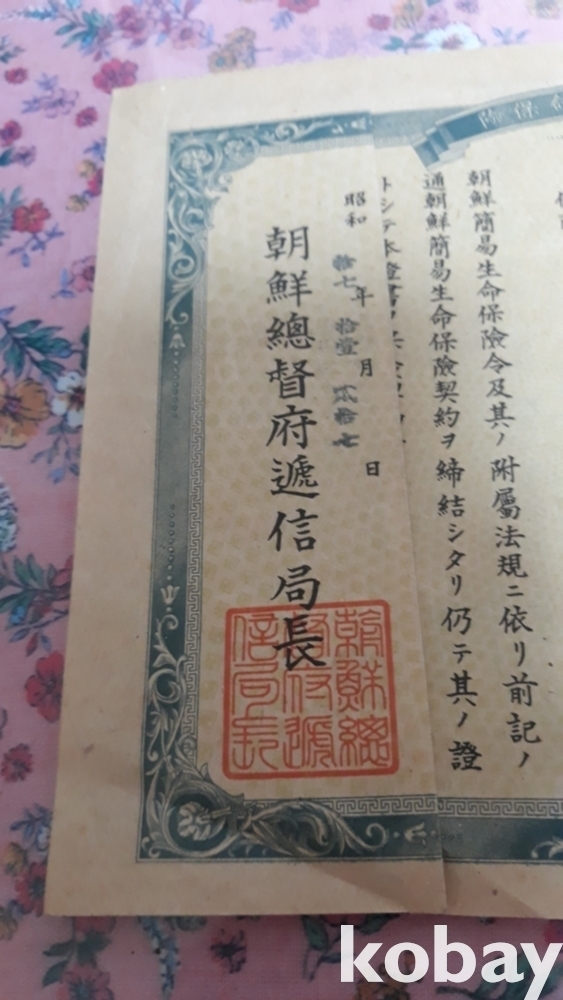 保險
朝鮮簡易生命保險令及其ノ附屬法規ニ依リ前記ノ
通朝鮮簡易生命保險契約ヲ締結シタリ仍テ其ノ證
トシテ本證書
昭和拾七年拾壹月貳拾七日
朝鮮總督府遞信局長
朝鮮總督府遞信局長
kobay